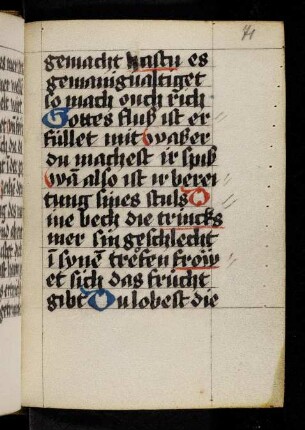 71
gemacht hastu es
gemanigualtiget
so mach ouch rich
Gottes fluß ist er
füllet mit waßer
du machest ir spiß
wā also ist ir berei
tung sines stuls O
ine bech die trincks
mer sin geschlecht
ī synē treffen fröw
et sich das frücht
gibt Du lobest die